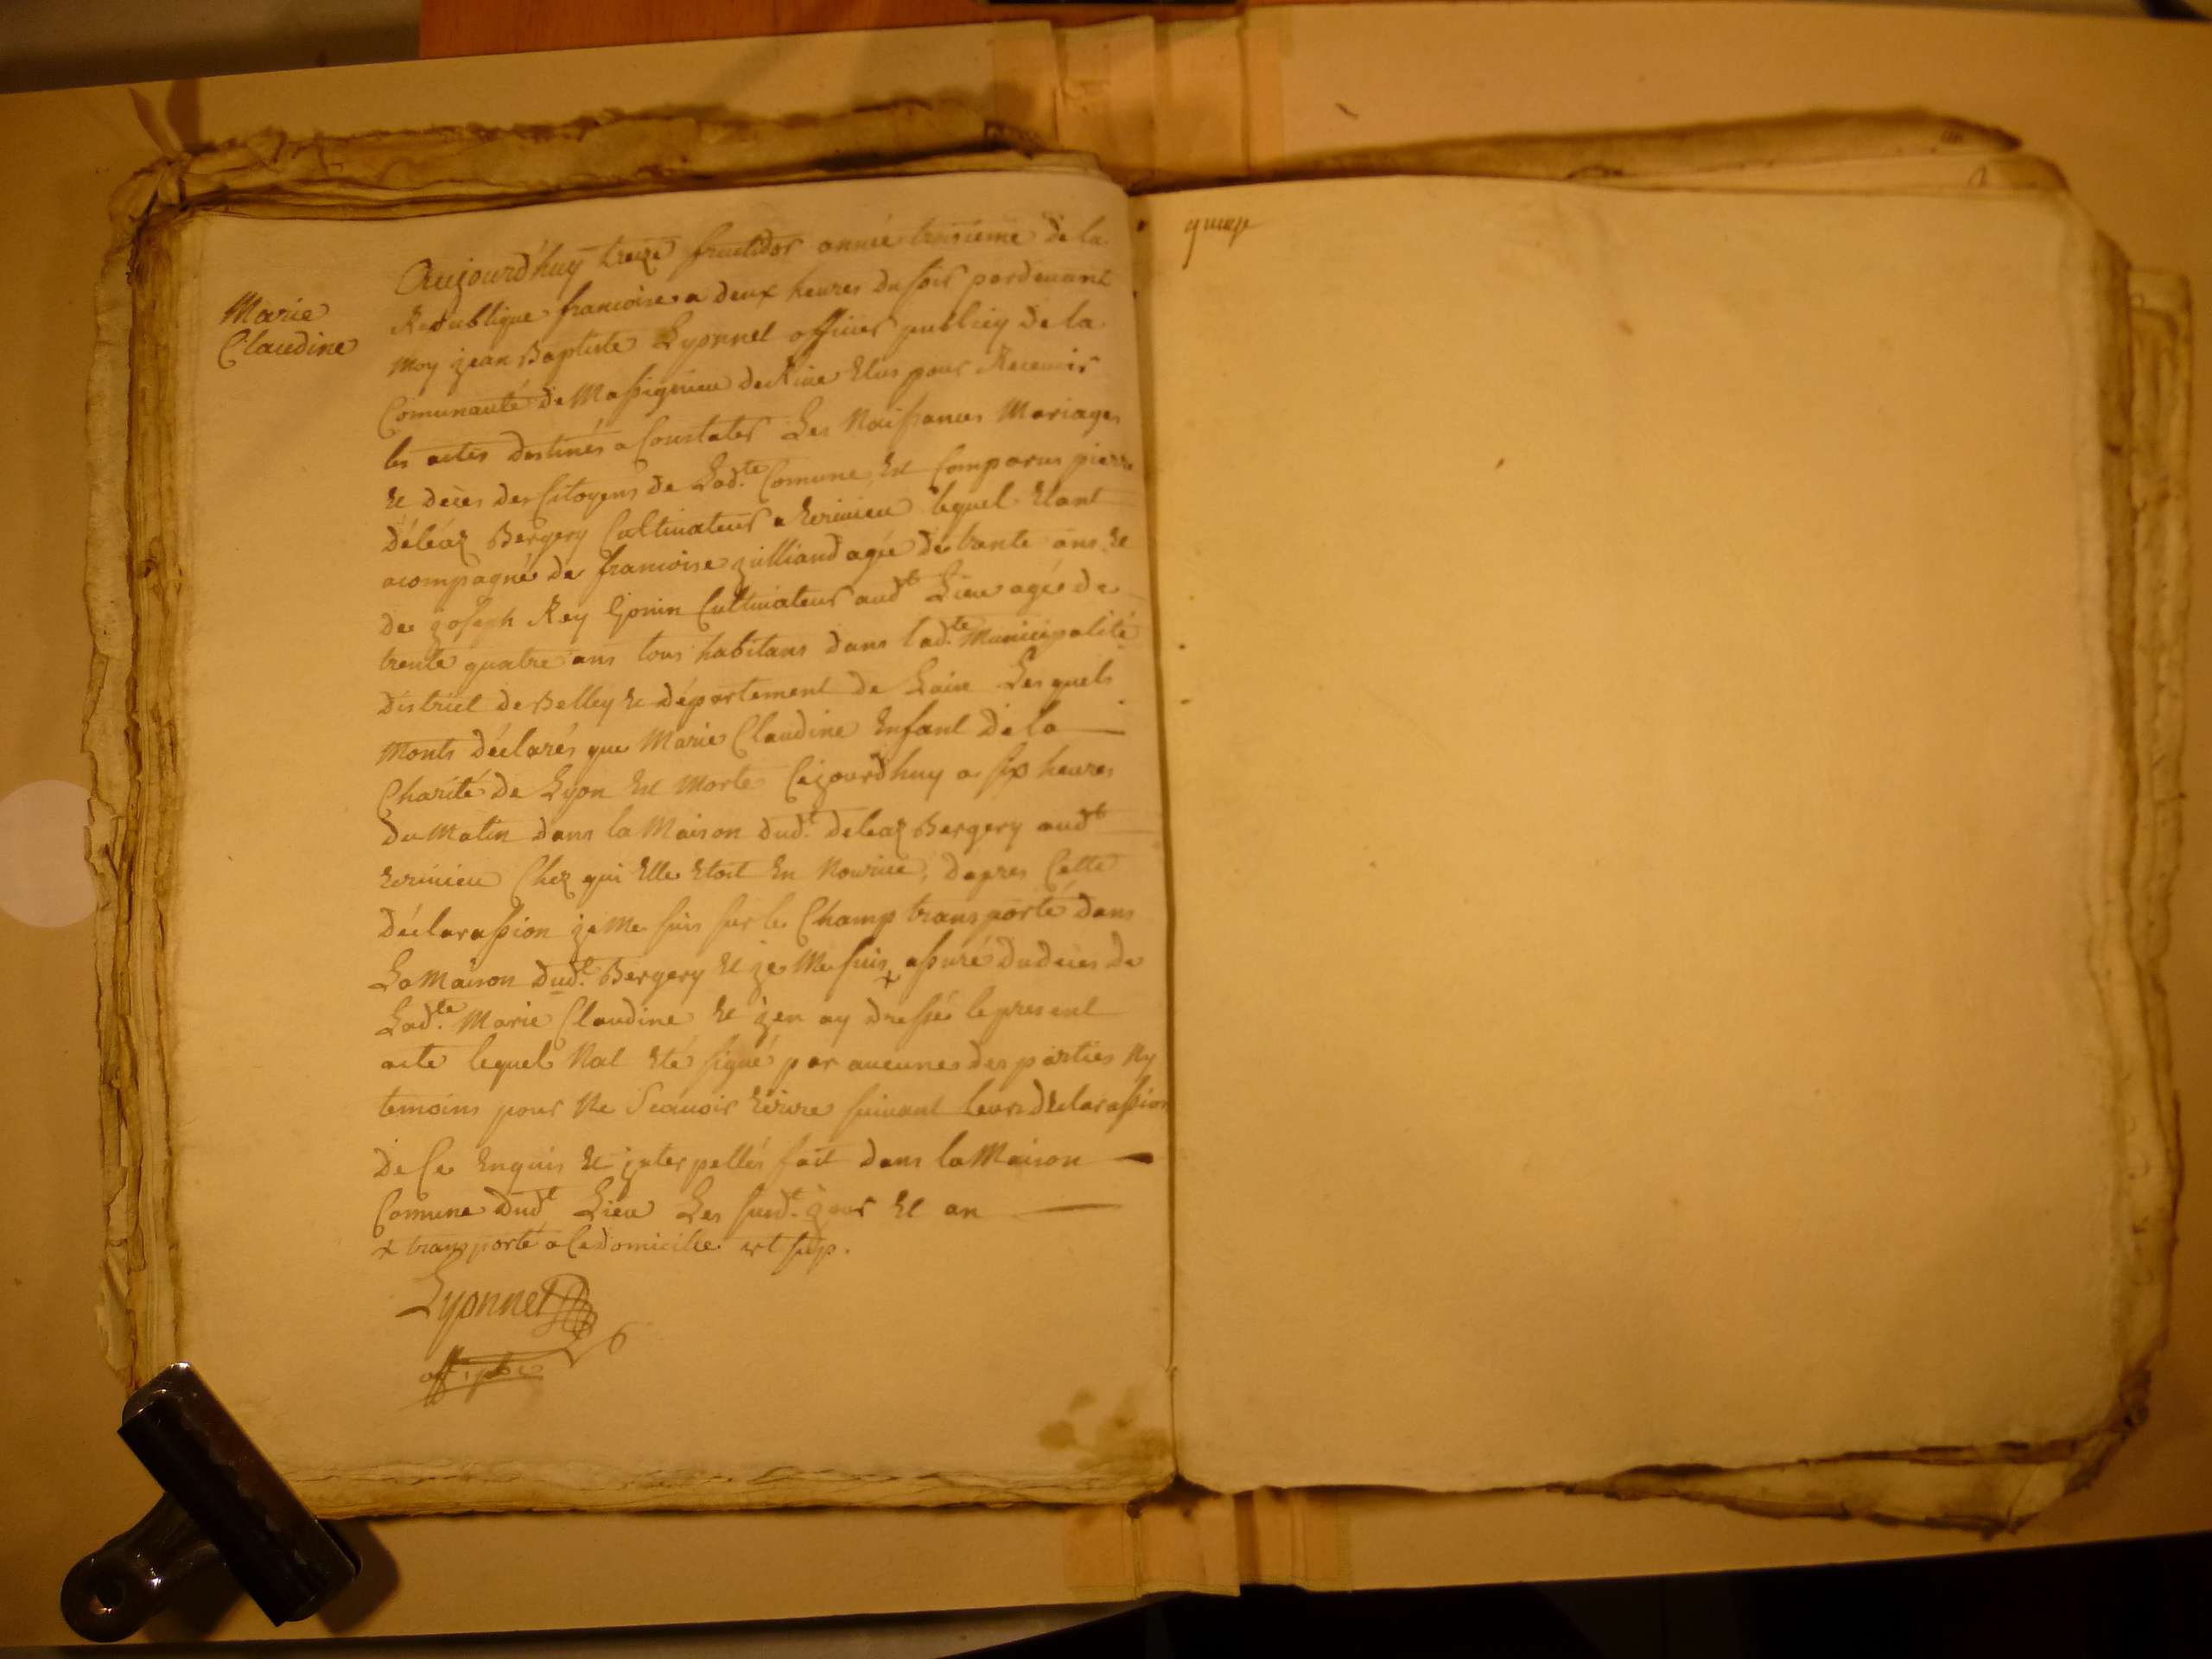 Marie
Claudine
Aujourd'huy treize fructidor année troisieme de la
Republique francoise a deux heures du soir pardevant
Moy jean Baptiste Lyonnet officier publicq de la
Comunauté de Massignieu de Rive Elus pour Recevoir
les actes destinés a Constater Les Naissances Mariages
Et decès des Citoyens de Lad.te Comune, Est Comparus pierre
déléaz Bergery Cultivateur a Ecrivieu lequel Etant
acompagné de francoise julliand agée de trante ans Et
de joseph Rey Gonin Cultivateur aud.t Lieu agée de
trente quatre ans tous habitans dans lad.te Municipalité
district de Belley Et département de Lain Lesquels
Monts déclarés que Marie Claudine Enfant de la
Charité de Lyon Est Morte Cejourdhuy a six heures
du Matin dans la Maison dud.t deleaz Bergery aud.t
Ecrivieu Chez qui Elle Etoit En Nourice, dapres Cette
déclarassion je Me suis sur le Champ transporté dans
La Maison dud.t Bergery Et je Me suis x assuré du deces de
Lad.te Marie Claudine Et jen ay dressée le present
acte lequel Nat Eté signé par aucunes des parties Ny
temoins pour Ne Scavoir Ecrire suivant leurs declarassion
de Ce Enquis Et jnterpellés fait dans la Maison
Comune dud.t Lieu Les susd.t jour Et an
x transporté a Ce domicille
Lyonnet
off. pbc